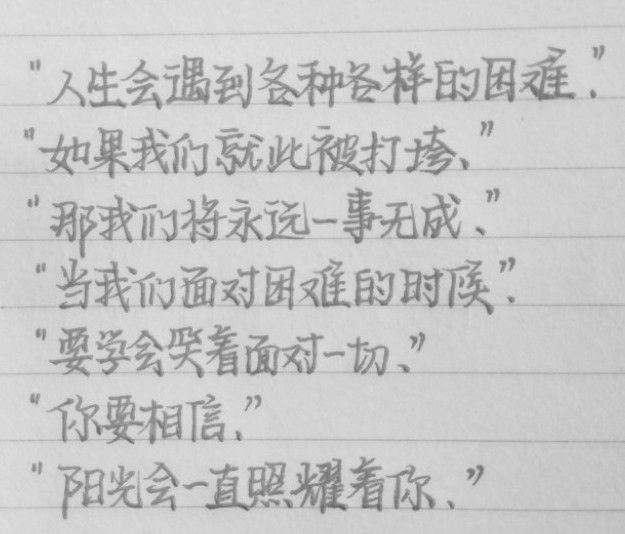 “人生会遇到各种各样的困难.”
“如果我们就此被打垮、”
“那我们将永远一事无成、”
“当我们面对困难的时候”.
“要学会笑着面对一切、”
“你要相信、”
“阳光会一直照耀着你、”